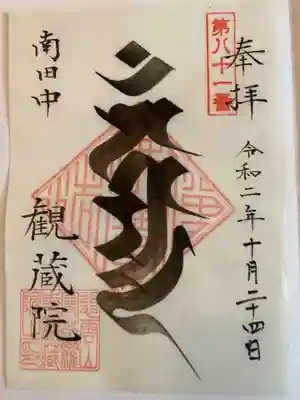 第八十一番
奉拝
令和二年十月二十四日
南田中
観蔵院